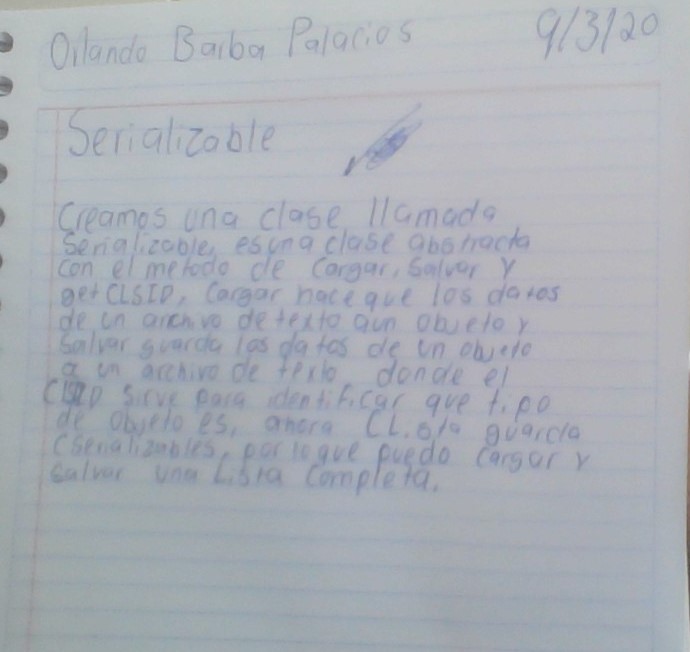 Orlando Barba Palacios 9/3/20
Serializable
Creamos una clase llamada
Serializable, es una clase abstracta
con el metodo de Cargar, Salvar y
get CLSID, Cargar hace que los datos
de un archivo de texto aun objeto y
Salvar guarda los datos de un objeto
a un archivo de texto donde el
CLSID Sirve para identificar que tipo
de objeto es, ahora CLista guarda
CSerializables, por lo que puedo Cargar y
Salvar una Lista Completa.